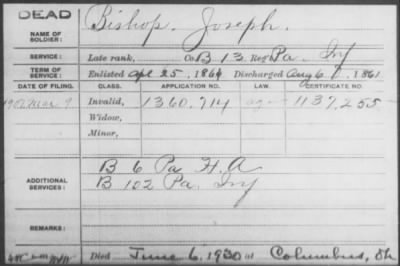 DEAD
NAME OF SOLDIER: Bishop, Joseph.
SERVICE: Late rank, Co B 13 Reg't Pa. Inf
TERM OF SERVICE: Enlisted Apl 25, 1861 Discharged Aug 6, 1861
DATE OF FILING. CLASS. APPLICATION NO. LAW. CERTIFICATE NO.
Mar 9 Invalid, 1360,714 1137,255
Widow,
Minor,
ADDITIONAL SERVICES: B 6 Pa H.A
B 102 Pa. Inf
REMARKS:
Died June 6, 1930 at Columbus, Oh